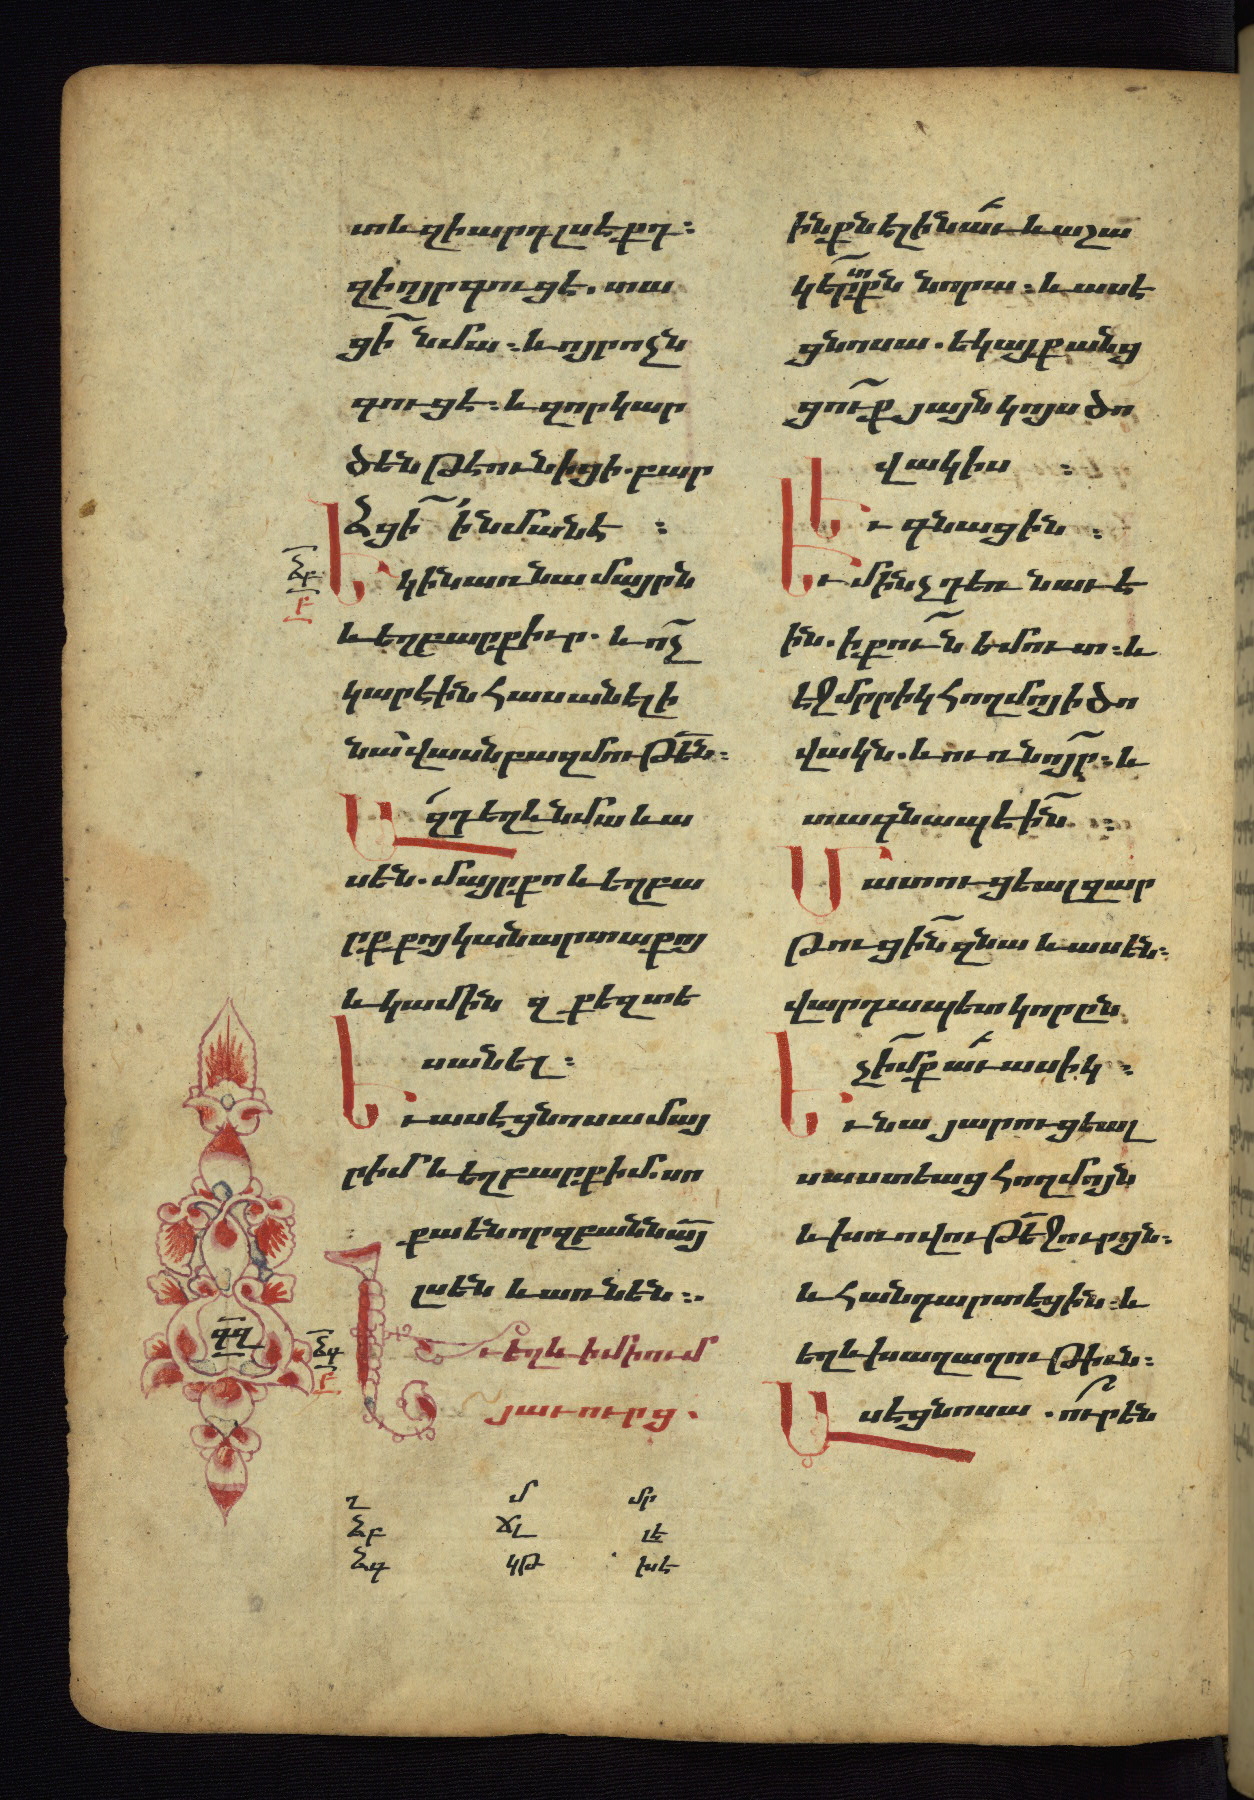 տև զիարդ լսէ քդ:
զի ոյր գուցէ. տա
ցի նմա: և ոյր ոչն
գուցէ: և զոր կար
ծէն թէ ունիցի. բար
ձցի ի նմանէ :
ՁԲ
Բ
Եկին առ նա մայրն
և եղբարքիւր. և ոչ
կարէին հասանել ի
նա վասն բազմութեն:
Ազդ եղև նմա և ա
սեն. մայր քո և եղբա
րք քոյ կան արտաքոյ
և կամին զքեզ տե
սանել :
Եւ ասէ ցնոսա մայ
ր իմ և եղբարք իմ. սո
քա են որ զբանն այ
լսեն և առնեն :.
ՁԳ
Բ
Եւ եղև ի միում
յաւուրց .
Ղ Մ ՄՐ
ՁԲ ՃԼ ԼԷ
ՁԳ ԿԹ ԽԷ
ինքն ել ի նաւ և աշա
կերտքն նորա : և ասէ
ցնոսա . եկայք անց
ցուք յայն կոյս ծո
վակիս :
Եւ գնացին :
Եւ մինչ դեռ նաւէ
ին. ի քուն եմուտ : և
էջ մրրիկ հողմոյ ի ծո
վակն. և ուռնոյր : և
տագնապէին :
Մատուցեալ զար
թուցին զնա և ասեն :
վարդապետ կորըն
չիմք աւասիկ :
Եւ նա յարուցեալ
սաստեաց հողմոյն
և խռովութե ջուրցն :
և հանդարտեցին : և
եղև խաղաղութիւն :
Ասէ ցնոսա . ուր են